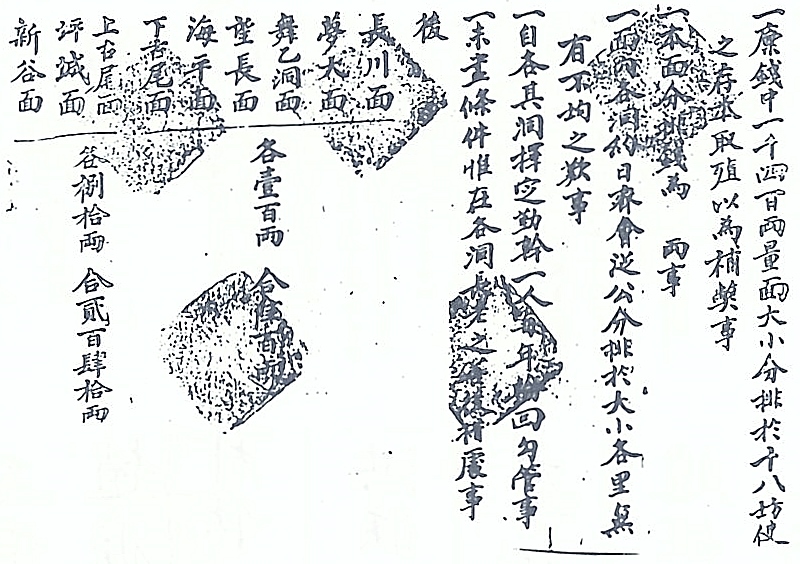 一廩錢中一千四百兩量面大小分排於十八坊使
之存本取殖以為補弊事
一本面分排錢為 兩事
一面內各洞約日齊會從公分排於大小各里無
有不均之歎事
一自各其洞擇定勤幹一人每年輪回勾管事
一未盡條件惟在各洞長老之 後 事
後
長川面
夢大面
舞乙洞面
望長面
海平面
各壹百兩 合伍百兩
下古尾面
上古尾面
坪城面
新谷面
各捌拾兩 合貳百肆拾兩